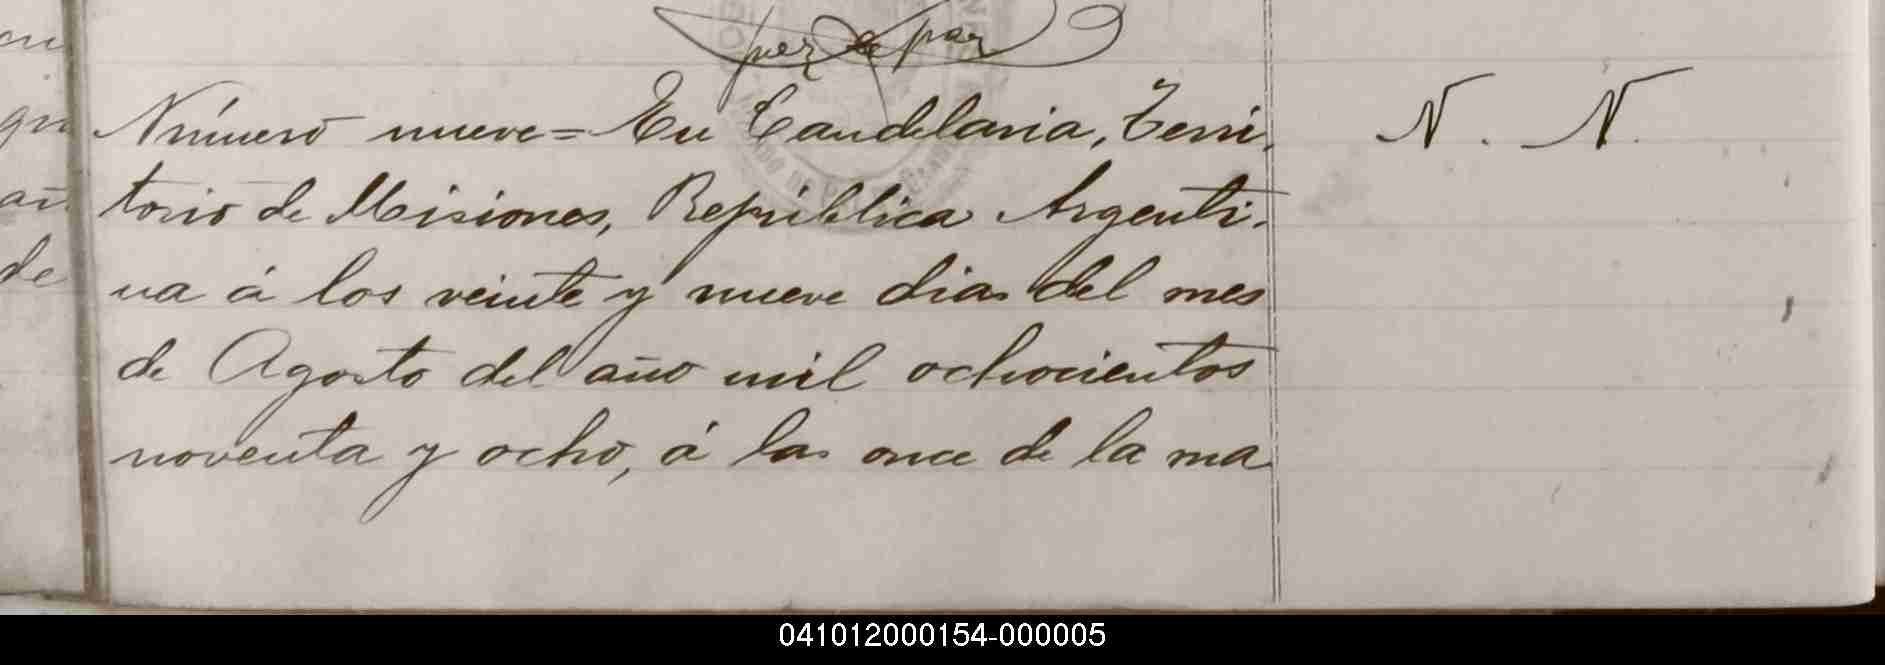 juez de paz
Número nueve = En Candelaria, Terri-
torio de Misiones, República Argenti-
na á los veinte y nueve dias del mes
de Agosto del año mil ochocientos
noventa y ocho, á las once de la ma
N. N.
de
041012000154-000005